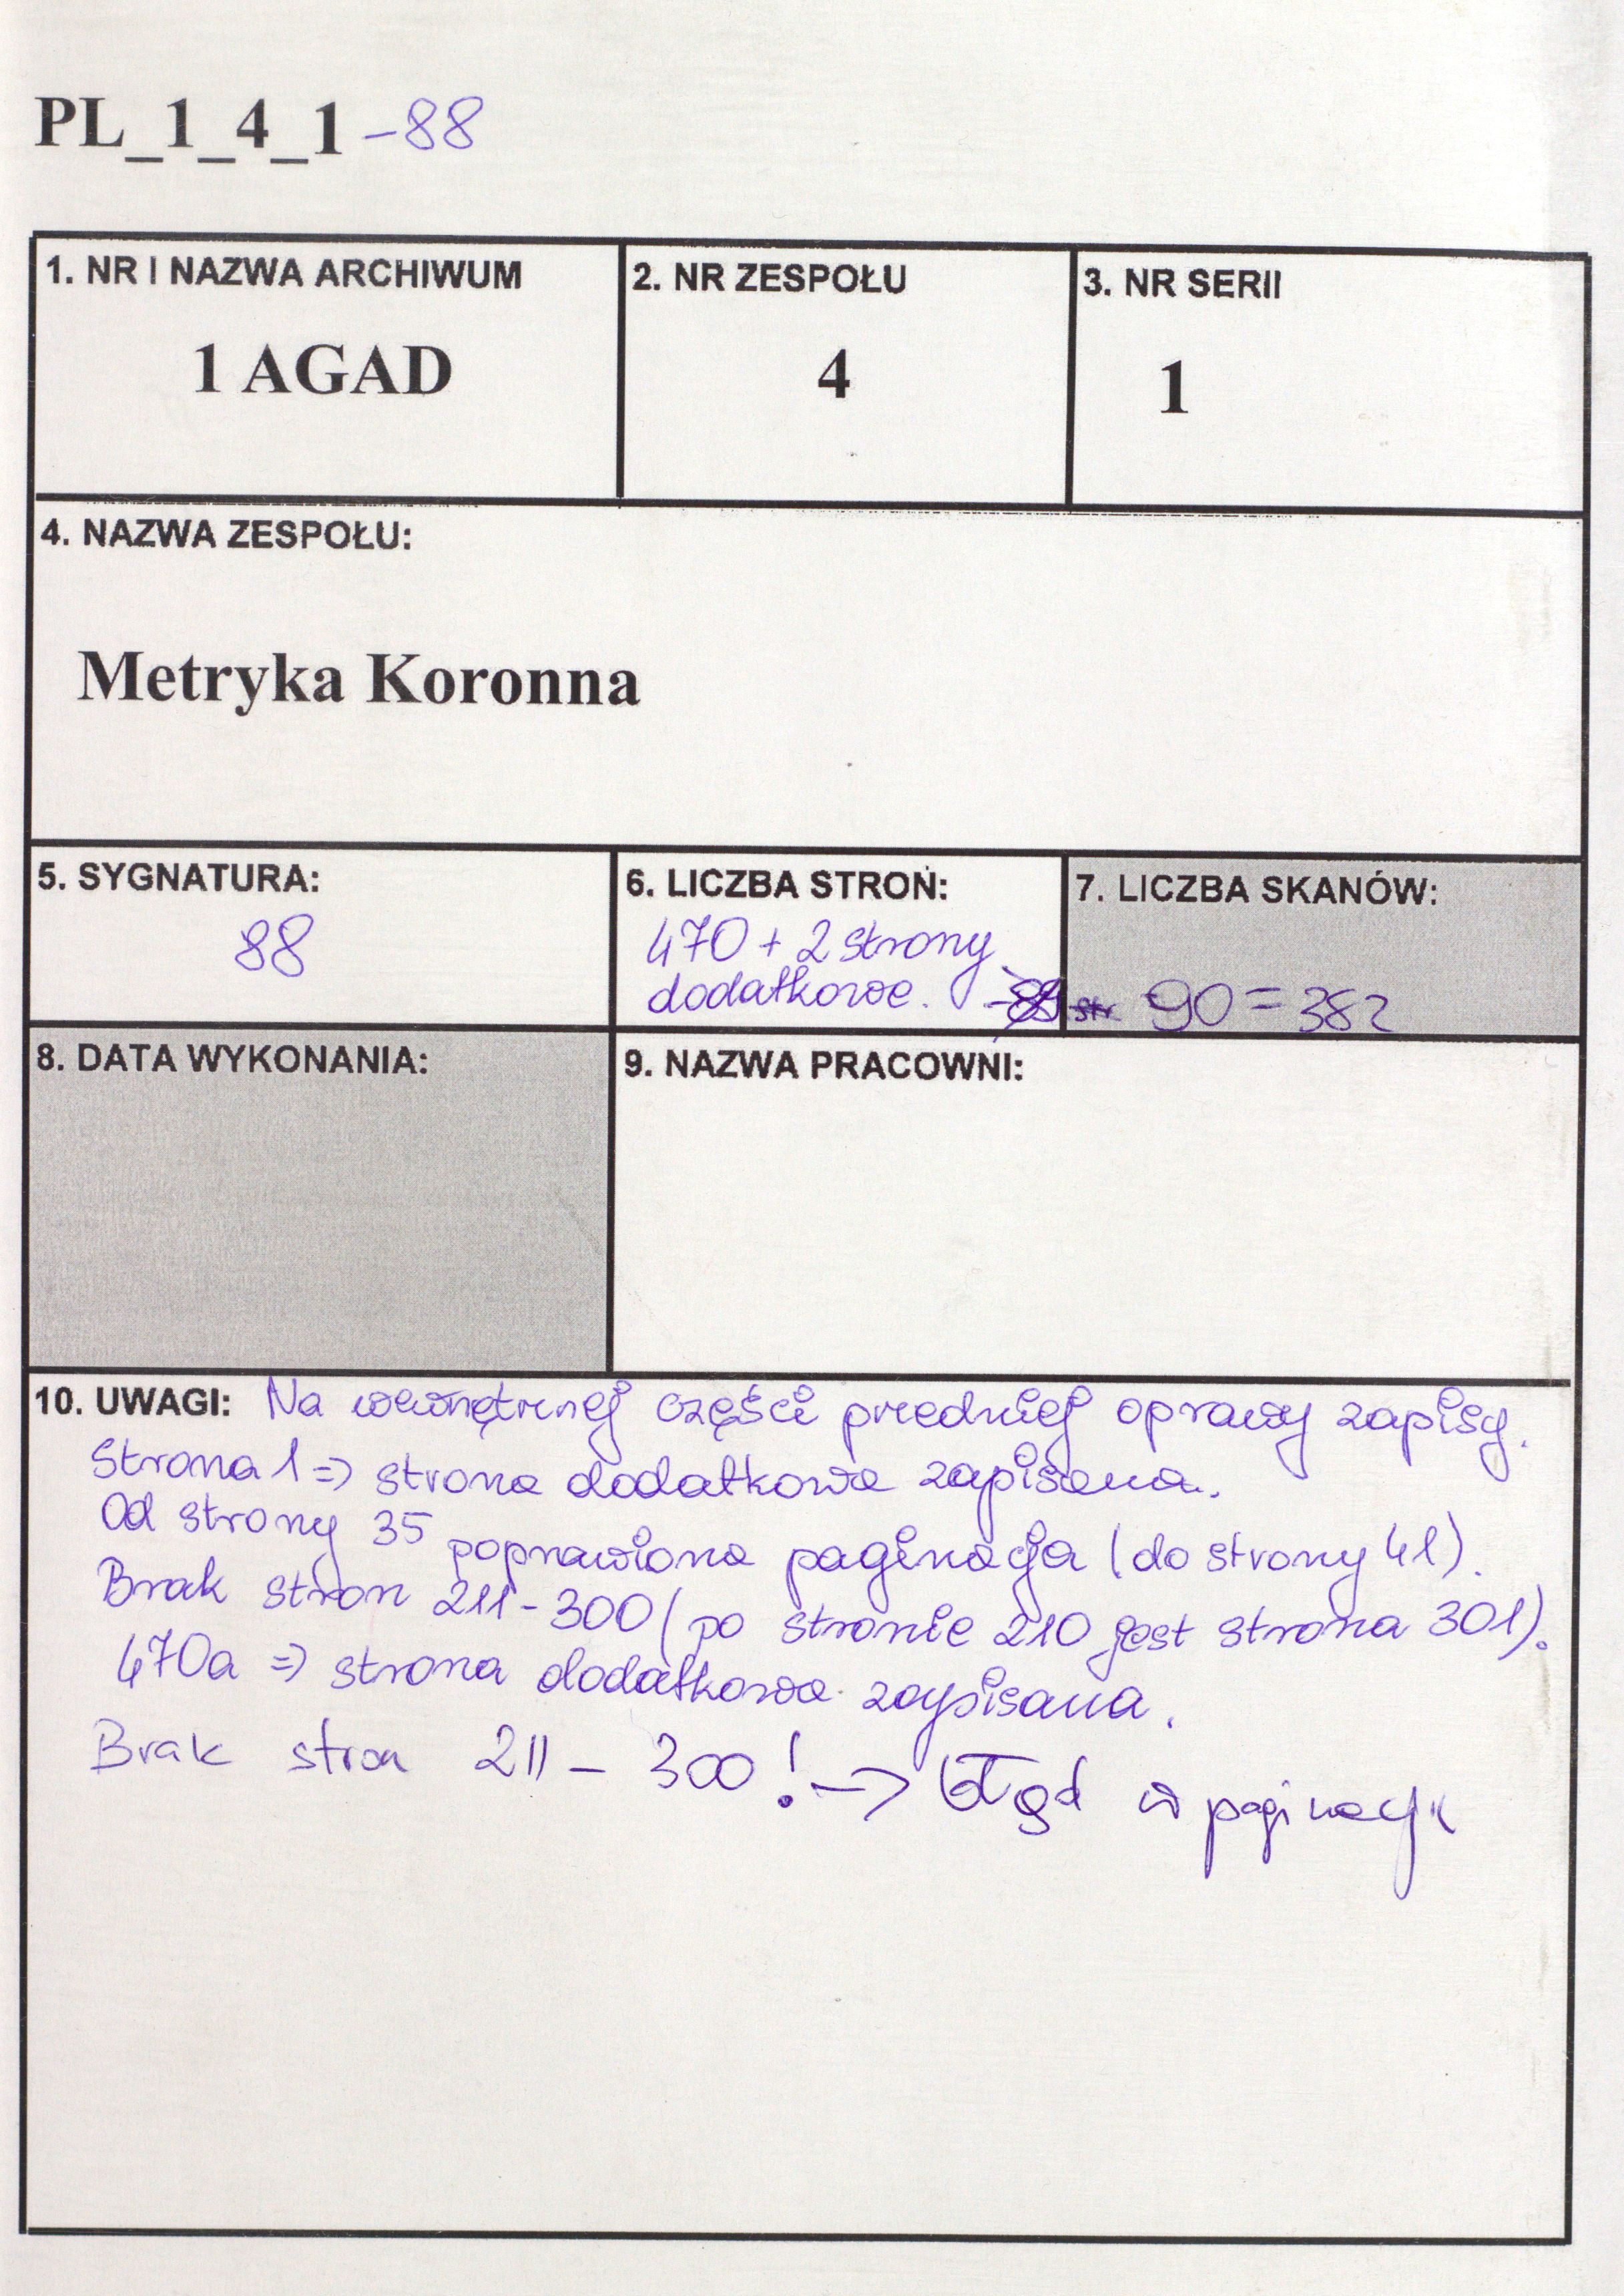 PL_1_4_1 -88
1. NR I NAZWA ARCHIWUM
1 AGAD
2. NR ZESPOŁU
4
3. NR SERII
1
4. NAZWA ZESPOŁU:
Metryka Koronna
5. SYGNATURA:
88
6. LICZBA STRON:
470 + 2 strony
dodatkowe.
7. LICZBA SKANÓW:
- 90 = 382
8. DATA WYKONANIA:
9. NAZWA PRACOWNI:
10. UWAGI: Na wewnętrznej części przedniej oprawy zapisy.
Strona 1 => strona dodatkowa zapisana.
Od strony 35 poprawiona paginacja (do strony 41).
Brak stron 211-300 (po stronie 210 jest strona 301).
470a => strona dodatkowa zapisana.
Brak stron 211 - 300! -> błąd w paginacji